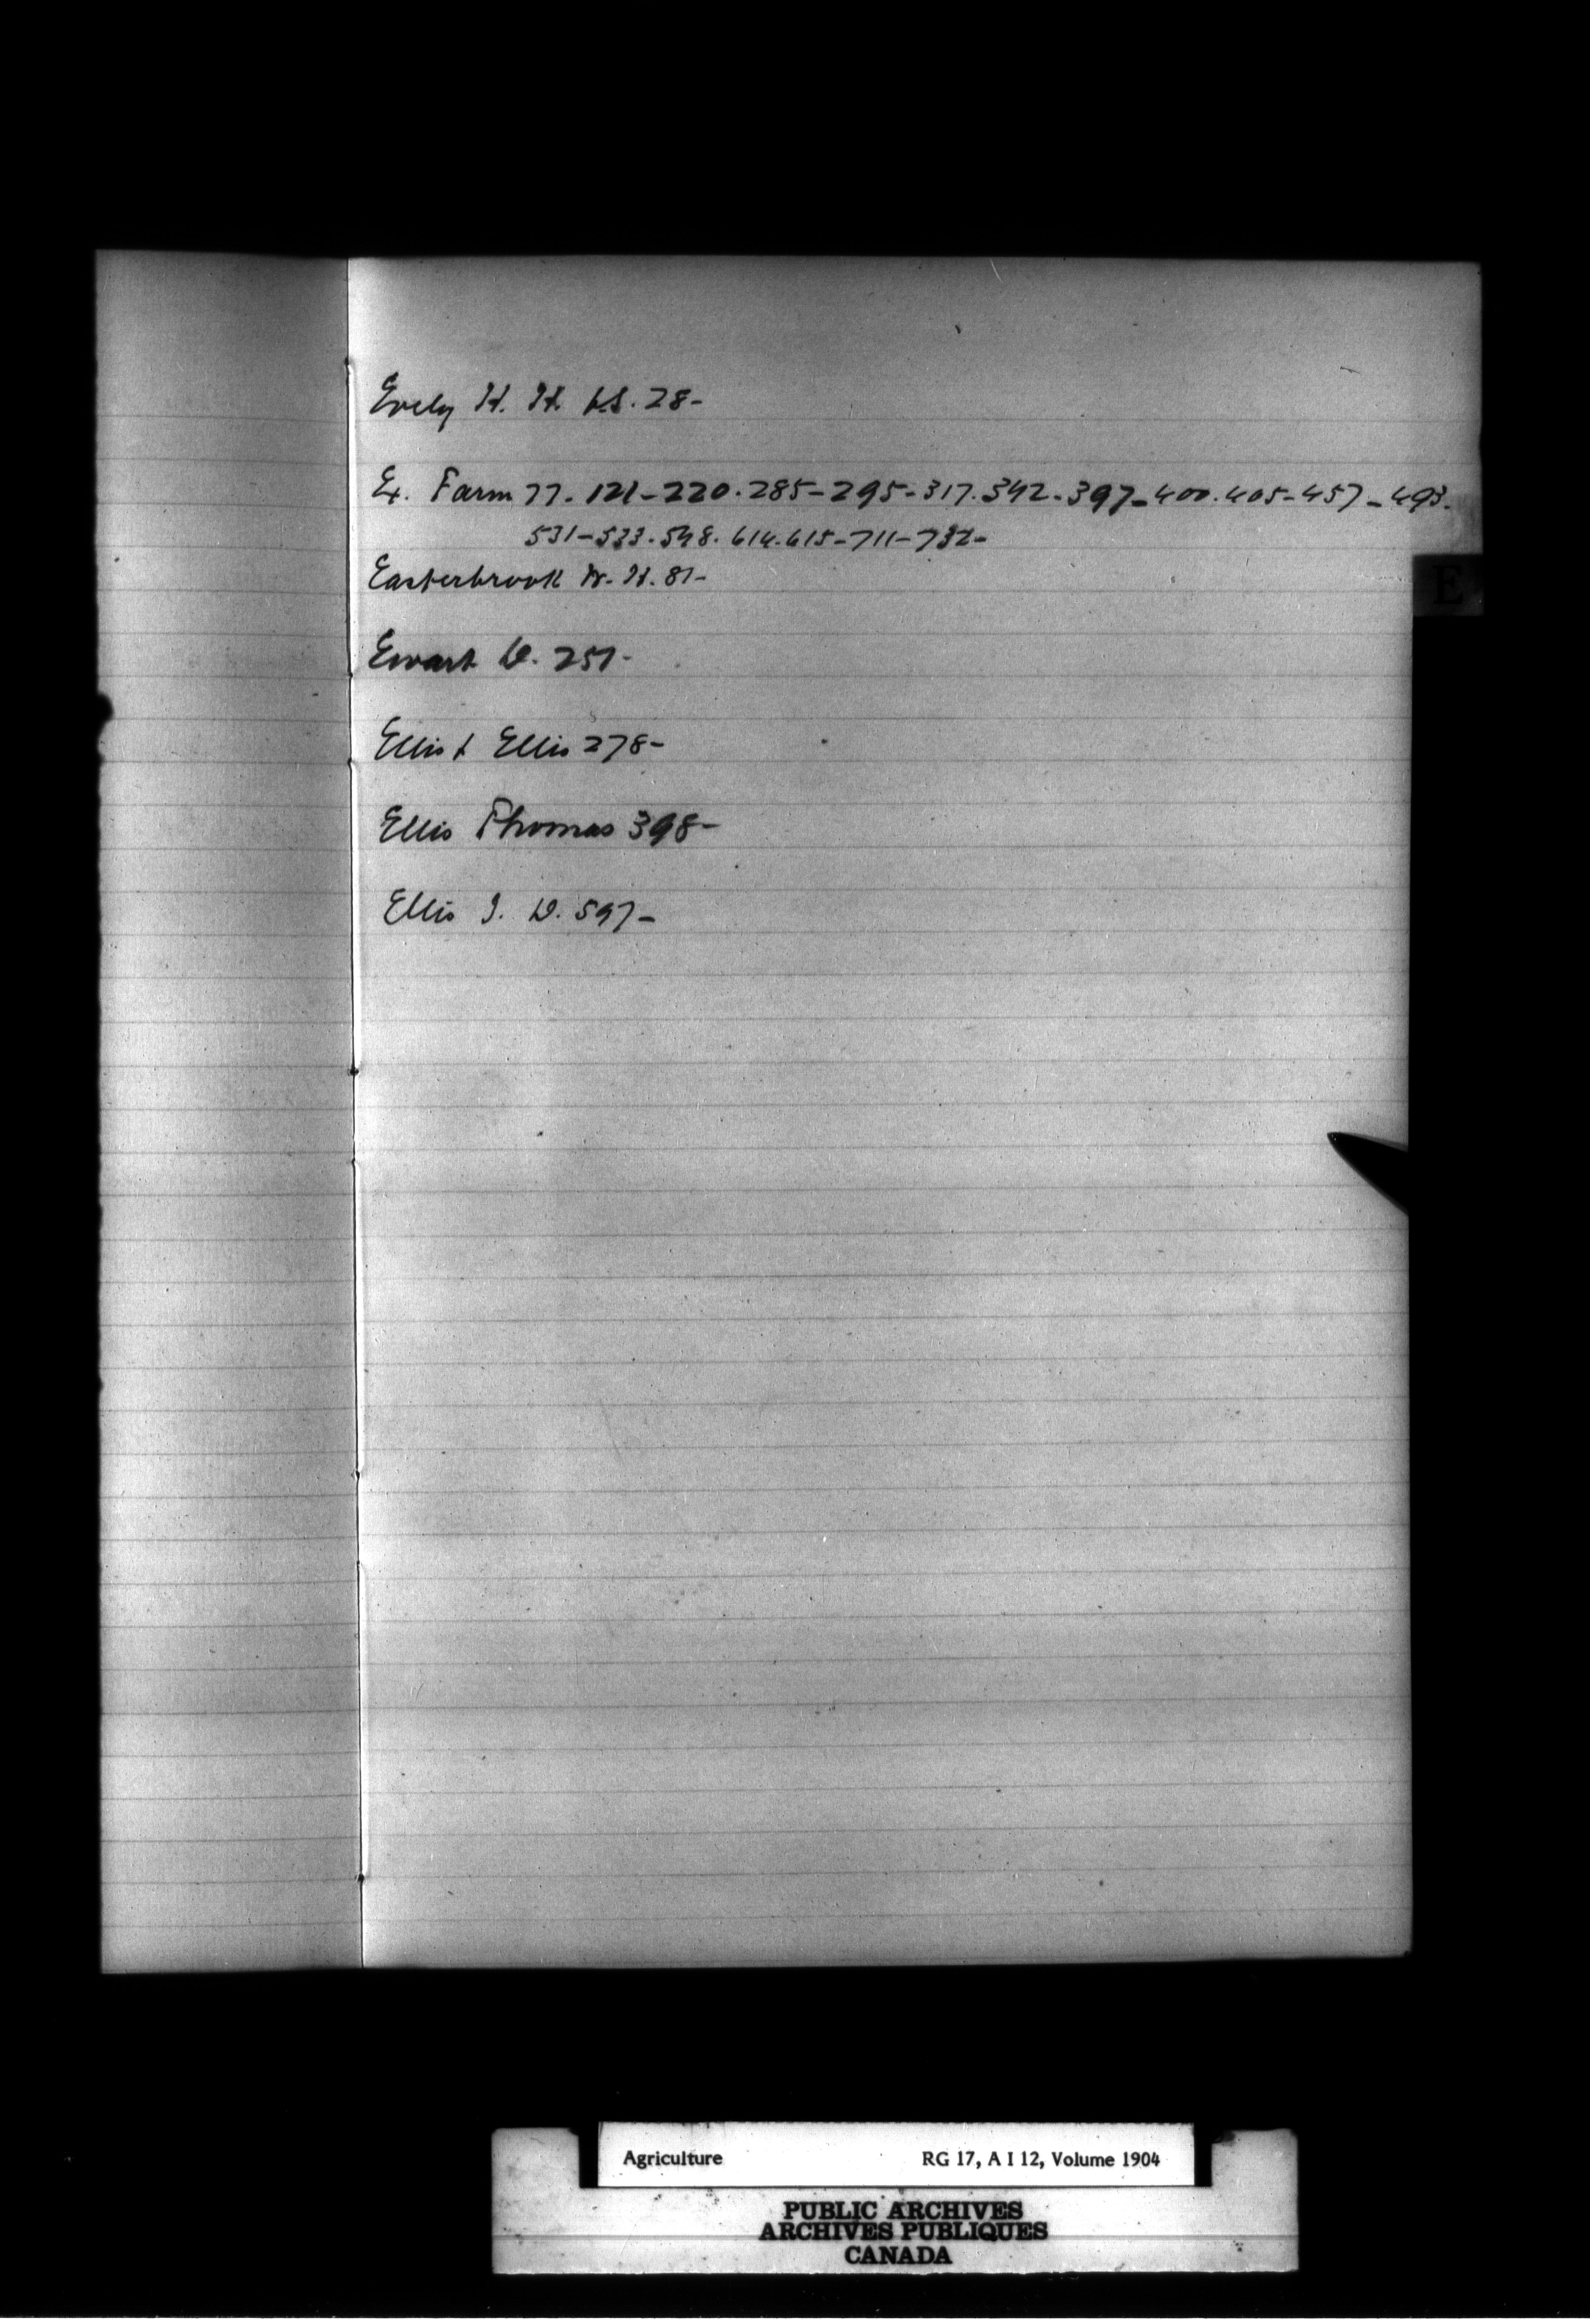 Evely H. H. & S. 28-
Ex. Farm 77- 121-220.285-295-317.342-397-400.405-457-493-
531-533.548.614.615-711-732-
Easterbrook W. H. 81-
E
Ewart D. 257-
Ellis & Ellis 278-
Ellis Thomas 398-
Ellis J. D. 597-
Agriculture RG 17, A I 12, Volume 1904
PUBLIC ARCHIVES
ARCHIVES PUBLIQUES
CANADA